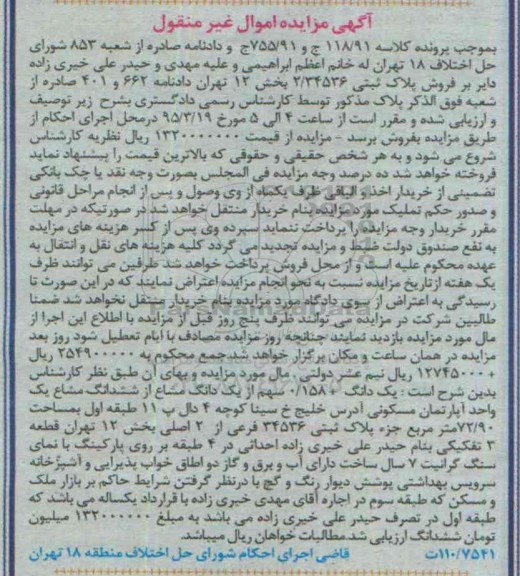 آگهی مزایده اموال غیر منقول
بموجب پرونده کلاسه ۱۱۸/۹۱ ج و ۷۵۵/۹۱ج و دادنامه صادره از شعبه ۸۵۳ شورای
حل اختلاف ۱۸ تهران له خانم اعظم ابراهیمی و علیه مهدی و حیدر علی خیری زاده
دایر بر فروش پلاک ثبتی ۲/۳۴۵۳۶ بخش ۱۲ تهران دادنامه ۶۶۲ و ۴۰۱ صادره از
شعبه فوق الذکر پلاک مذکور توسط کارشناس رسمی دادگستری بشرح زیر توصیف
و ارزیابی شده و مقرر است از ساعت ۴ الی ۵ مورخ ۹۵/۳/۱۹ درمحل اجرای احکام از
طریق مزایده بفروش برسد - مزایده از قیمت ۱۳۲۰۰۰۰۰۰۰ ریال نظریه کارشناس
شروع می شود و به هر شخص حقیقی و حقوقی که بالاترین قیمت را پیشنهاد نماید
فروخته خواهد شد ده درصد وجه مزایده فی المجلس بصورت وجه نقد یا چک بانکی
تضمینی از خریدار اخذ و الباقی ظرف یکماه از وی وصول و پس از انجام مراحل قانونی
و صدور حکم تملیک مورد مزایده بنام خریدار منتقل خواهد شد در صورتیکه در مهلت
مقرر خریدار وجه مزایده را پرداخت ننماید سپرده وی پس از کسر هزینه های مزایده
به نفع صندوق دولت ضبط و مزایده تجدید می گردد کلیه هزینه های نقل و انتقال به
عهده محکوم علیه است و از محل فروش پرداخت خواهد شد طرفین می توانند ظرف
یک هفته ازتاریخ مزایده نسبت به نحو انجام مزایده اعتراض نمایند که در این صورت تا
رسیدگی به اعتراض از سوی دادگاه مورد مزایده بنام خریدار منتقل نخواهد شد ضمنا
طالبین شرکت در مزایده می توانند ظرف پنج روز قبل از مزایده با اطلاع این اجرا از
مال مورد مزایده بازدید نمایند چنانچه روز مزایده مصادف با ایام تعطیل شود روز بعد
مزایده در همان ساعت و مکان برگزار خواهد شد.جمع محکوم به ۲۵۴۹۰۰۰۰۰ ریال
+ ۱۲۷۴۵۰۰۰ ریال نیم عشر دولتی. مال مورد مزایده و بهای آن طبق نظر کارشناس
بدین شرح است : یک دانگ + ۰/۱۵۸ سهم از یک دانگ مشاع از ششدانگ مشاع یک
واحد آپارتمان مسکونی آدرس خلیج خ سینا کوچه ۴ دال پ ۱۱ طبقه اول بمساحت
۷۲/۹۰متر مربع جزء پلاک ثبتی ۳۴۵۳۶ فرعی از ۲ اصلی بخش ۱۲ تهران قطعه
۳ تفکیکی بنام حیدر علی خیری زاده احداثی در ۴ طبقه بر روی پارکینگ با نمای
سنگ گرانیت ۷ سال ساخت دارای آب و برق و گاز دو اطاق خواب پذیرایی و آشپزخانه
سرویس بهداشتی پوشش دیوار رنگ و گچ با درنظر گرفتن شرایط حاکم بر بازار ملک
و مسکن که طبقه سوم در اجاره آقای مهدی خیری زاده با قرارداد یکساله می باشد که
طبقه اول در تصرف حیدر علی خیری زاده می باشد به مبلغ ۱۳۲۰۰۰۰۰۰ میلیون
تومان ششدانگ ارزیابی شد.مطالبات خواهان ریال میباشد.
۱۱۰/۷۵۴۱ت قاضی اجرای احکام شورای حل اختلاف منطقه ۱۸ تهران